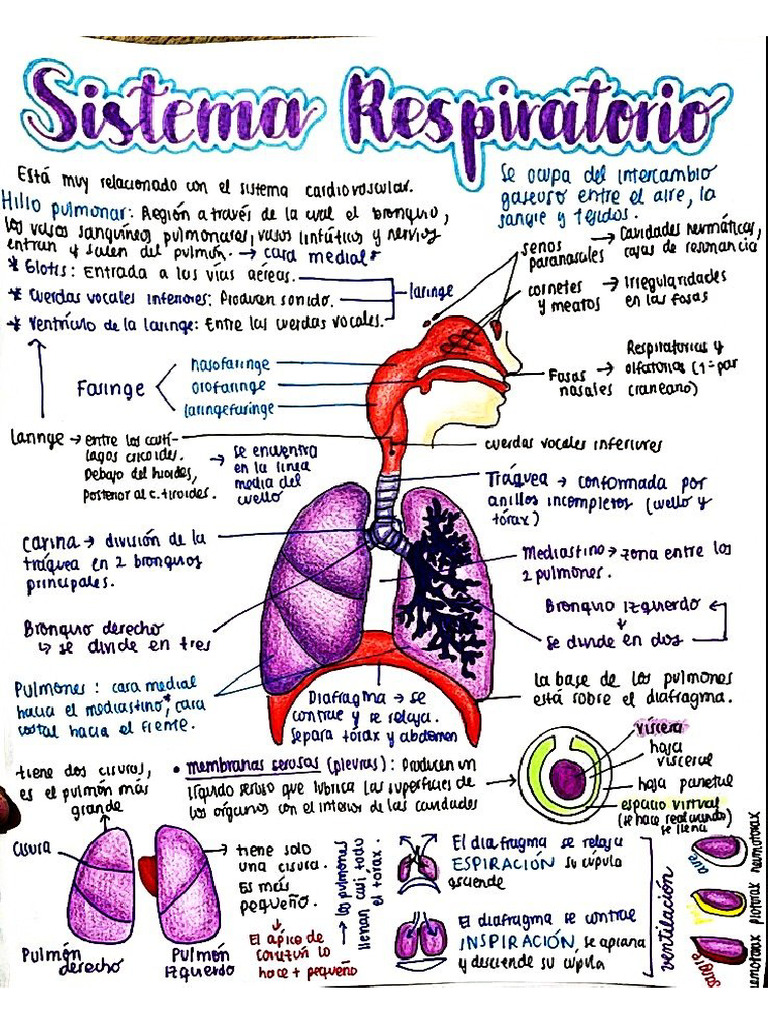 Sistema Respiratorio
Está muy relacionado con el sistema cardiovascular.
Hilio pulmonar: Región a través de la cual el bronquio,
los vasos sanguíneos pulmonares, vasos linfáticos y nervios
entran y salen del pulmón. → cara medial *
* Glotis: Entrada a las vías aéreas.
* Cuerdas vocales inferiores: Producen sonido.
* Ventrículo de la laringe: Entre las cuerdas vocales.
laringe
Se ocupa del intercambio
gaseoso entre el aire, la
sangre y tejidos.
senos
paranasales
→ Cavidades neumáticas,
cajas de resonancia
cornetes
y meatos
→ Irregularidades
en las fosas
Fosas
nasales
→ Respiratorias y
olfatorias (1º par
craneano)
Faringe
nasofaringe
orofaringe
laringefaringe
laringe → entre los cartí-
lagos cricoides.
Debajo del hioides,
posterior al c. tiroides.
→ se encuentra
en la línea
media del
cuello
cuerdas vocales inferiores
Tráquea → conformada por
anillos incompletos (cuello y
tórax)
Carina → división de la
tráquea en 2 bronquios
principales.
Mediastino → zona entre los
2 pulmones.
Bronquio derecho
↳ se divide en tres
Bronquio izquierdo
↓
se divide en dos
Pulmones: cara medial
hacia el mediastino*, cara
costal hacia el frente.
Diafragma → se
contrae y se relaja.
Separa tórax y abdomen
la base de los pulmones
está sobre el diafragma.
• membranas serosas (pleuras): Producen un
líquido seroso que lubrica las superficies de
los órganos con el interior de las cavidades
víscera
hoja
visceral
hoja parietal
espacio virtual
(se hace real cuando)
se llena
tiene dos cisuras,
es el pulmón más
grande
cisura
Pulmón
derecho
Pulmón
izquierdo
→ tiene solo
una cisura.
Es más
pequeño.
El ápice de
corazón lo
hace + pequeño
→ los pulmones
llenan casi todo
el tórax.
El diafragma se relaja
ESPIRACIÓN su cúpula
asciende
El diafragma se contrae
INSPIRACIÓN, se aplana
y desciende su cúpula
ventilación
aire
neumotorax
piotorax
sangre
hemotorax